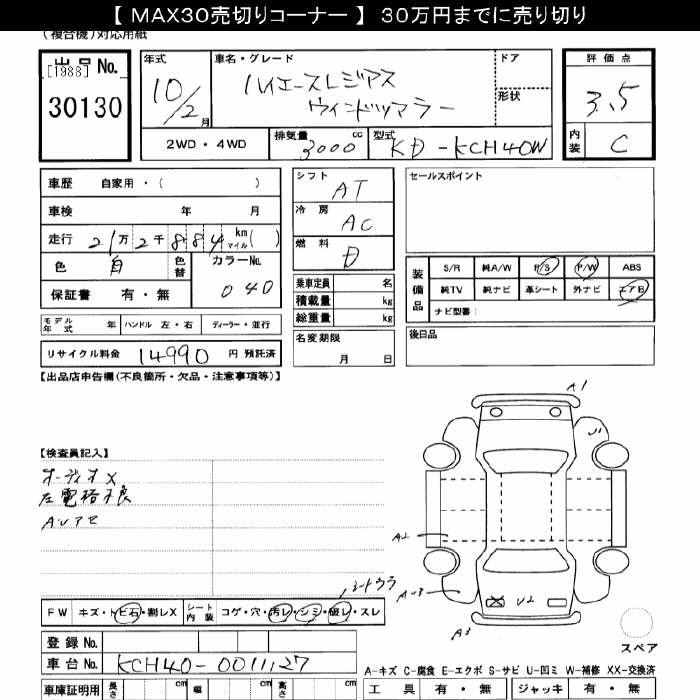 【 MAX30売切りコーナー 】 30万円までに売り切り
(複合機)対応用紙
出品No.
[1988]
30130
年式
10/2月
車名・グレード
ハイエースレジアス
ウィンドツアラー
ドア
形状
評価点
3.5
内装
C
2WD・4WD
排気量
3000 cc
型式
KD-KCH40W
車歴 自家用・( )
車検 年 月
走行 21万2千884 km マイル( )
色 白
色替
カラーNo.
040
保証書 有・無
シフト
AT
冷房
AC
燃料
D
乗車定員 名
積載量 kg
総重量 kg
セールスポイント
装備品
S/R 純A/W P/S P/W ABS
純TV 純ナビ 革シート 外ナビ エアB
ナビ型番:
モデル年式 年 ハンドル 左・右 ディーラー・並行
名変期限
月 日
後日品
リサイクル料金 14990 円 預託済
【出品店申告欄(不良箇所・欠品・注意事項等)】
A1
【検査員記入】
オーディオX
左電格不良
A2
A3
U2
シートウラ
FW キズ・トビ石・割レX シート内装 コゲ・穴・汚レ・シミ・破レ・スレ
登録No.
車台No. KCH40-0011127
スペア
A-キズ C-腐食 E-エクボ S-サビ U-凹ミ W-補修 XX-交換済
車庫証明用 長さ cm 幅 cm 高さ cm
工具 有・無 ジャッキ 有・無